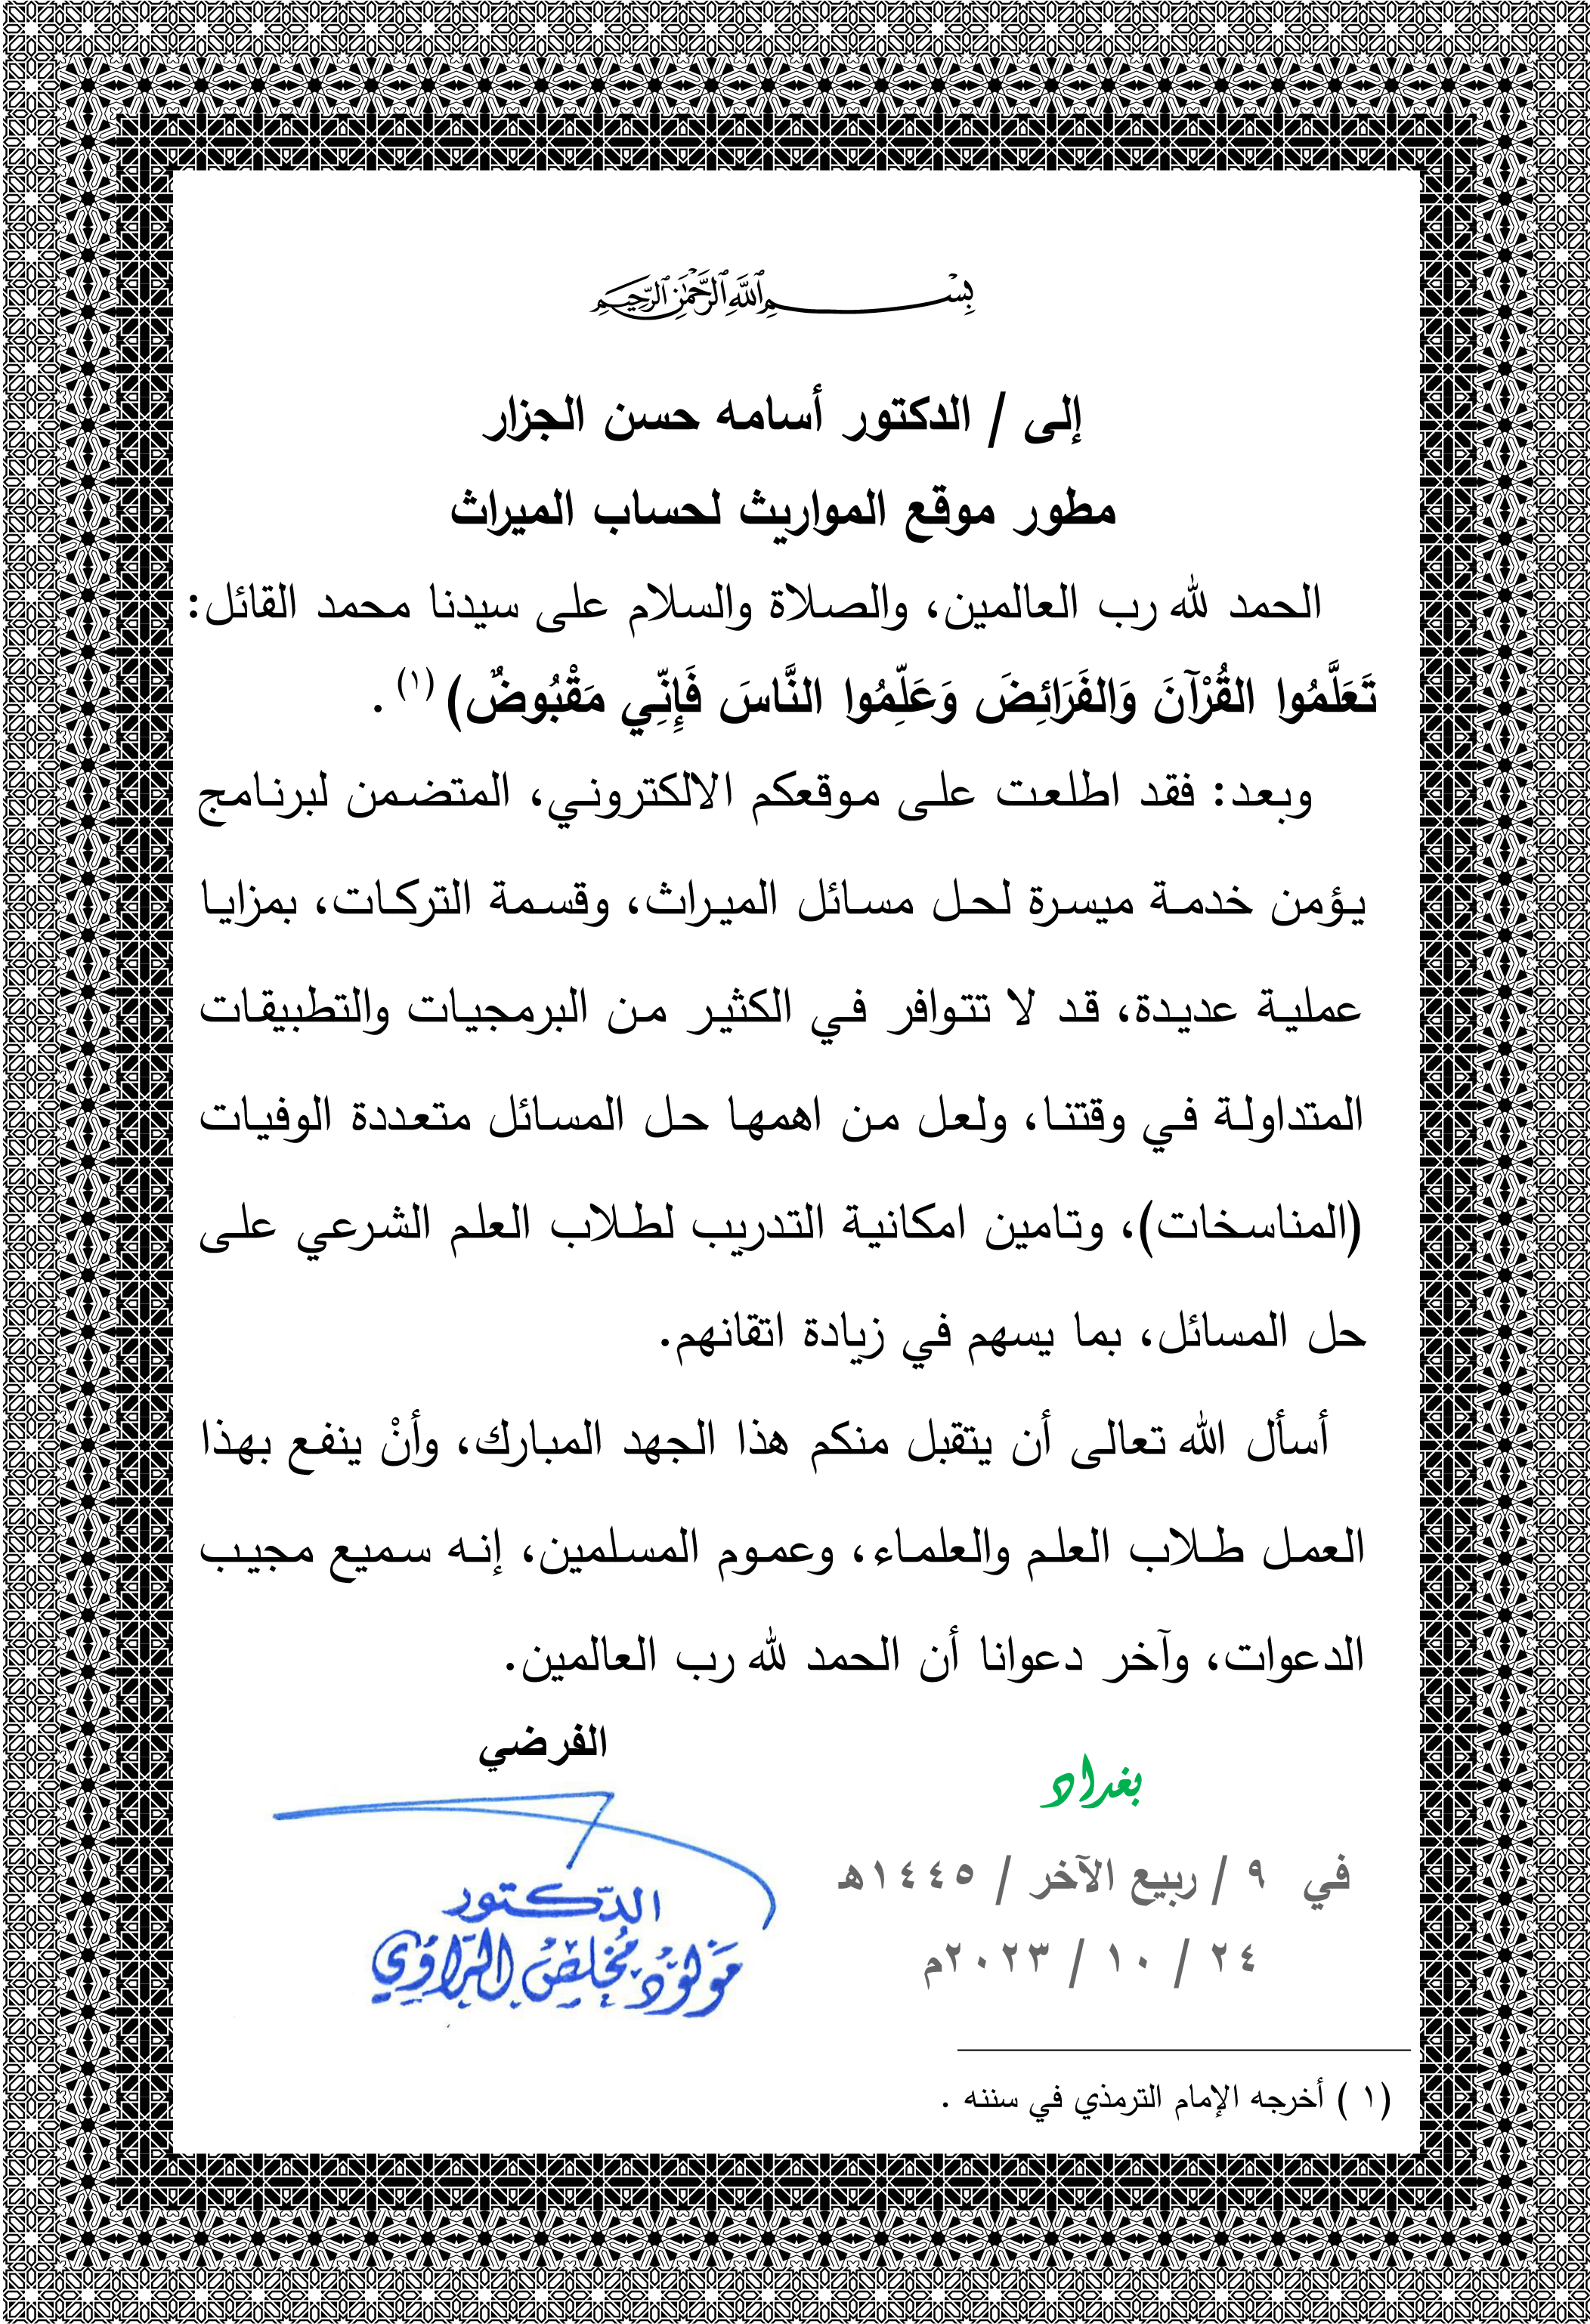 بِسْمِ اللَّهِ الرَّحْمَٰنِ الرَّحِيمِ
إلى / الدكتور أسامه حسن الجزار
مطور موقع المواريث لحساب الميراث
الحمد لله رب العالمين، والصلاة والسلام على سيدنا محمد القائل:
تَعَلَّمُوا القُرْآنَ وَالفَرَائِضَ وَعَلِّمُوا النَّاسَ فَإِنِّي مَقْبُوضٌ) (١) .
وبعد: فقد اطلعت على موقعكم الالكتروني، المتضمن لبرنامج
يؤمن خدمة ميسرة لحل مسائل الميراث، وقسمة التركات، بمزايا
عملية عديدة، قد لا تتوافر في الكثير من البرمجيات والتطبيقات
المتداولة في وقتنا، ولعل من اهمها حل المسائل متعددة الوفيات
(المناسخات)، وتامين امكانية التدريب لطلاب العلم الشرعي على
حل المسائل، بما يسهم في زيادة اتقانهم.
أسأل الله تعالى أن يتقبل منكم هذا الجهد المبارك، وأنْ ينفع بهذا
العمل طلاب العلم والعلماء، وعموم المسلمين، إنه سميع مجيب
الدعوات، وآخر دعوانا أن الحمد لله رب العالمين.
الفرضي
بغداد
في ٩ / ربيع الآخر / ١٤٤٥هـ
٢٤ / ١٠ / ٢٠٢٣م
الدّكتور
مَولوُد مُخلِصْ الرَّاوِي
(١ ) أخرجه الإمام الترمذي في سننه .